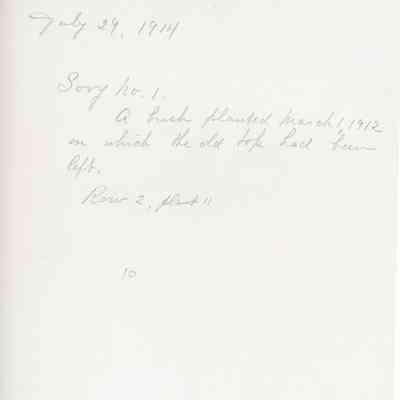 July 29, 1914
Sooy no. 1.
A bush planted March 1, 1912
on which the old top had been
left.
Row 2, plant 11
10